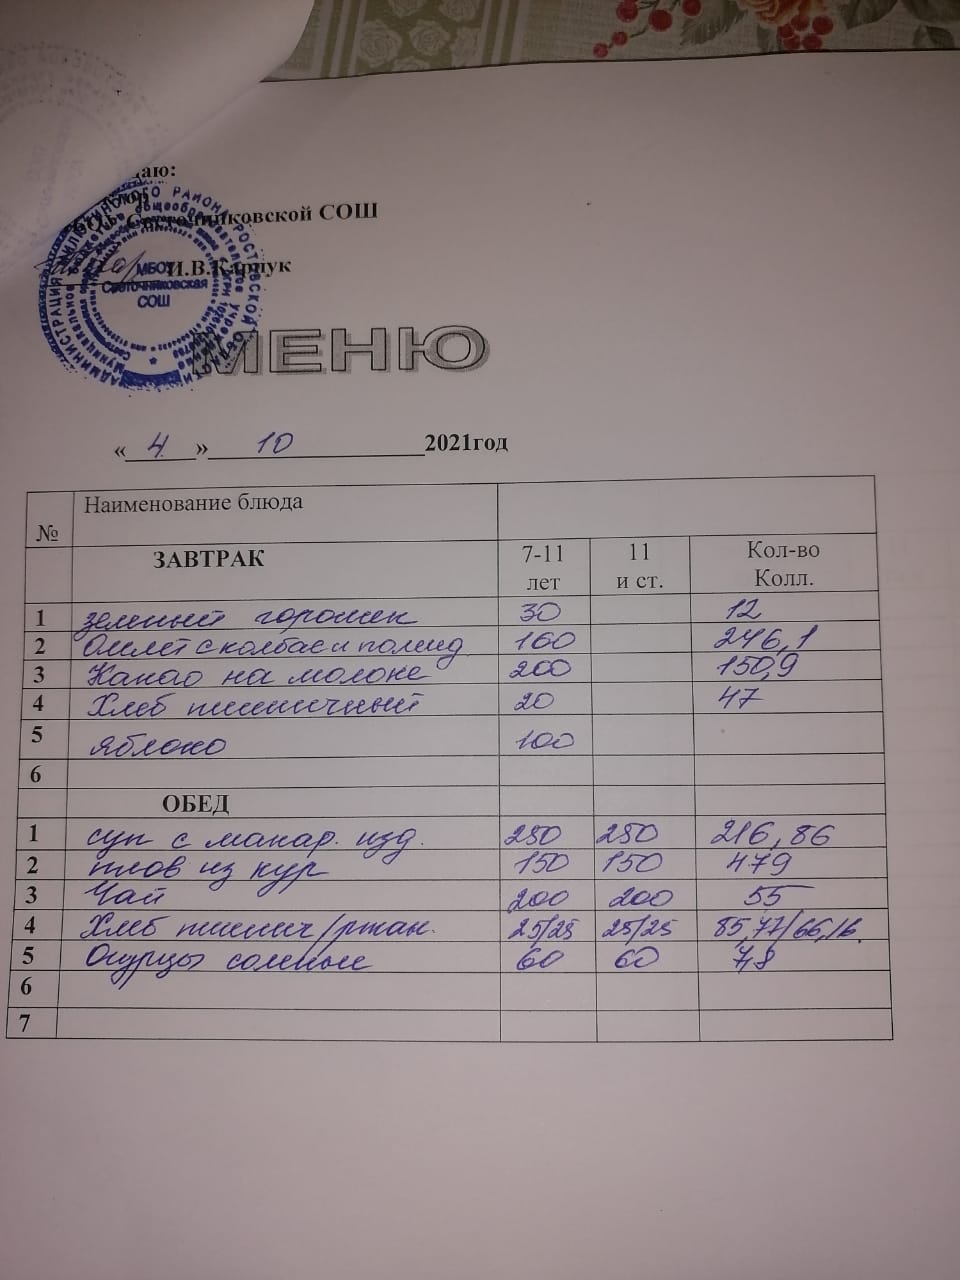 даю:
Светочниковской СОШ
И.В.Карпук
МБОУ
Светочниковская
СОШ
МЕНЮ
« 4 » 10 2021год
№ Наименование блюда
ЗАВТРАК 7-11 лет 11 и ст. Кол-во Колл.
1 зеленый горошек 30 12
2 Омлет с колбас и помид 160 246,1
3 Какао на молоке 200 150,9
4 Хлеб пшеничный 20 47
5 яблоко 100
6
ОБЕД
1 суп с макар. изд. 250 250 216,86
2 плов из кур 150 150 479
3 Чай 200 200 55
4 Хлеб пшенич/ржан. 25/25 25/25 85,77/66,16
5 Огурцы соленые 60 60 7,8
6
7